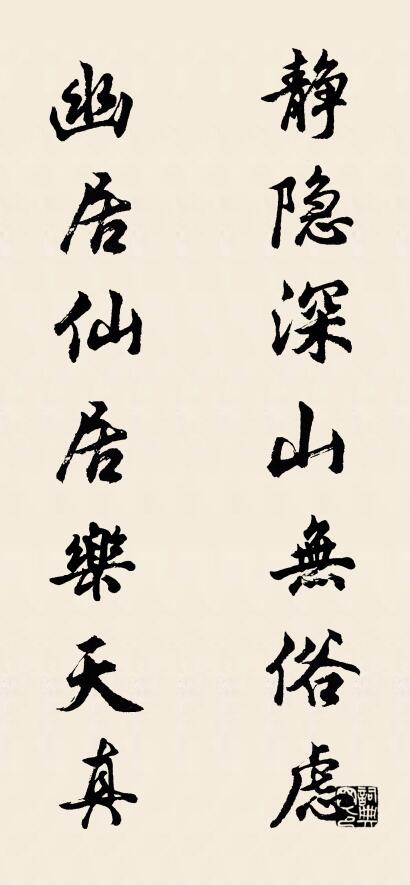 静隐深山無俗虑
幽居仙居樂天真
詞典